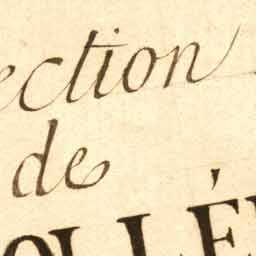 ection
de
OLLÉ